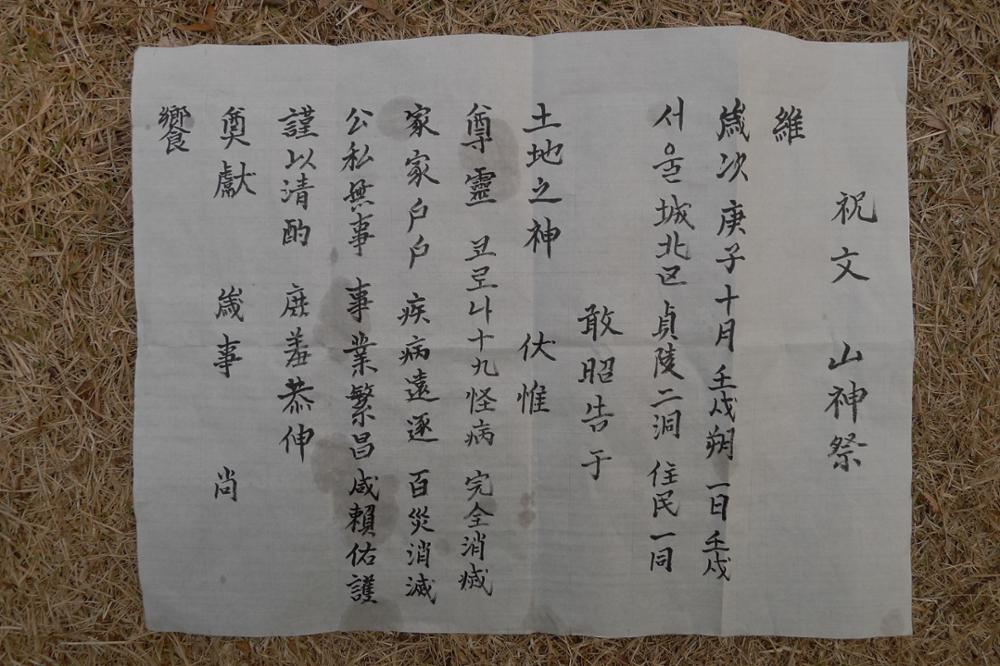 祝文 山神祭
維
歲次 庚子十月 壬戌朔 一日 壬戌
서울 城北구 貞陵二洞 住民一同
敢昭告于
土地之神 伏惟
尊靈 코로나十九怪病 完全消滅
家家戶戶 疾病遠逐 百災消滅
公私無事 事業繁昌咸賴佑護
謹以清酌 庶羞恭伸
奠獻 歲事 尚
饗